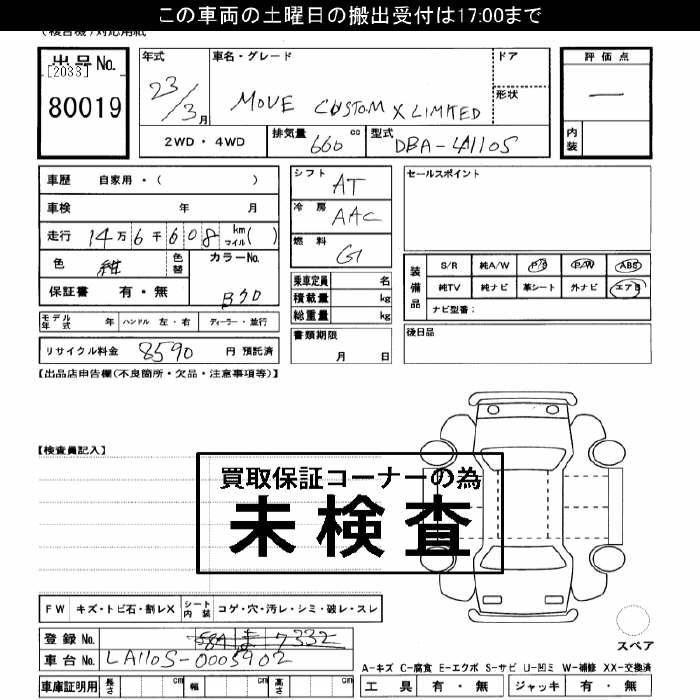 この車両の土曜日の搬出受付は17:00まで
出品No.
[2033]
80019
年式
23/3月
車名・グレード
MOVE CUSTOM X LIMITED
ドア
形状
評価点
—
内装
2WD・4WD
排気量 660 cc
型式 DBA-LA110S
車歴 自家用・( )
車検 年 月
走行 14万6千608 km マイル( )
色 紺
色替
カラーNo.
保証書 有・無
モデル年式 年 ハンドル 左・右 ディーラー・並行
リサイクル料金 8590 円 預託済
シフト AT
冷房 AAC
燃料 G
乗車定員 名
積載量 kg
総重量 kg
書類期限
月 日
セールスポイント
装備品
S/R 純A/W P/S P/W ABS
純TV 純ナビ 革シート 外ナビ エアB
ナビ型番:
後日品
【出品店申告欄(不良箇所・欠品・注意事項等)】
【検査員記入】
買取保証コーナーの為
未検査
FW キズ・トビ石・割レX シート内装 コゲ・穴・汚レ・シミ・破レ・スレ
登録No. 7332
車台No. LA110S-0005902
車庫証明用 長さ cm 幅 cm 高さ cm
スペア
A-キズ C-腐食 E-エクボ S-サビ U-凹ミ W-補修 XX-交換済
工具 有・無 ジャッキ 有・無